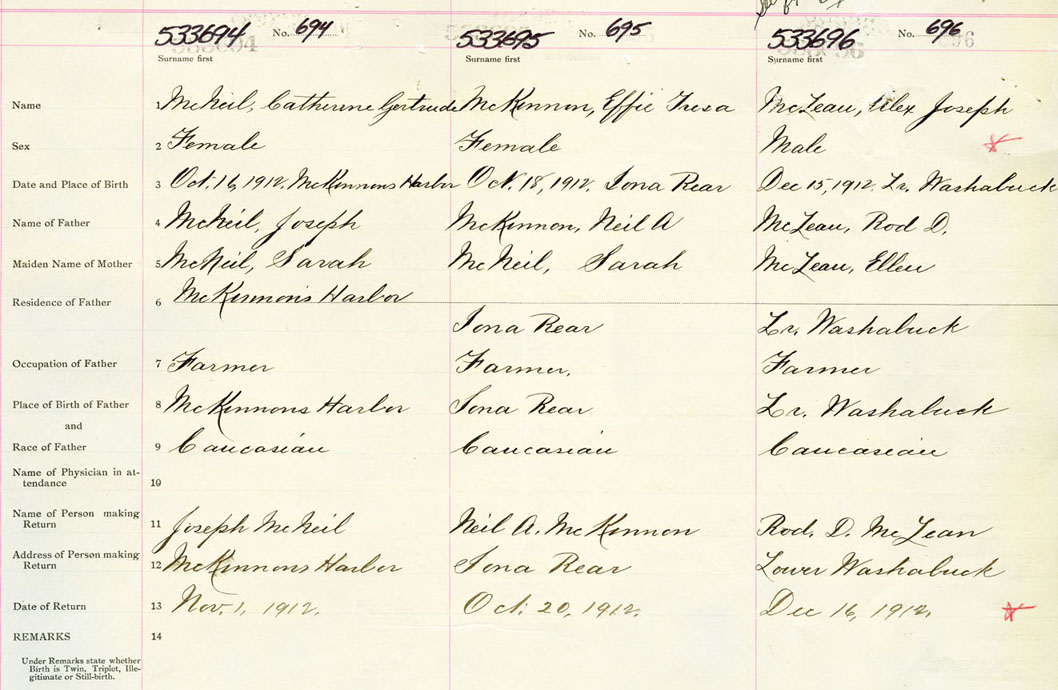 533694 No. 694 533695 No. 695 533696 No. 696
Surname first Surname first Surname first
Name 1 McNeil, Catherine Gertrude McKinnon, Effie Tresa McLean, Alex Joseph
Sex 2 Female Female Male
Date and Place of Birth 3 Oct. 16, 1912. McKinnons Harbor Oct. 18, 1912. Iona Rear Dec 15, 1912. Lr. Washabuck
Name of Father 4 McNeil, Joseph McKinnon, Neil A McLean, Rod D.
Maiden Name of Mother 5 McNeil, Sarah McNeil, Sarah McLean, Ellen
Residence of Father 6 McKinnons Harbor
Iona Rear Lr. Washabuck
Occupation of Father 7 Farmer Farmer. Farmer
Place of Birth of Father 8 McKinnons Harbor Iona Rear Lr. Washabuck
and
Race of Father 9 Caucasian Caucasian Caucasian
Name of Physician in at-
tendance 10
Name of Person making
Return 11 Joseph McNeil Neil A. McKinnon Rod. D. McLean
Address of Person making
Return 12 McKinnons Harbor Iona Rear Lower Washabuck
Date of Return 13 Nov. 1, 1912. Oct. 20, 1912. Dec 16, 1912.
REMARKS 14
Under Remarks state whether
Birth is Twin, Triplet, Ille-
gitimate or Still-birth.